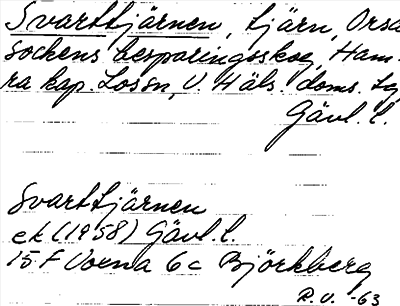 Svarttjärnen, tjärn, Orsa
sockens besparingsskog, Ham-
ra kap. Lossn, V. Häls. doms. sg
Gävl. l.
Svarttjärnen
ek (1958) Gävl. l.
15 F Voxna 6c Björkberg
R. V. -63